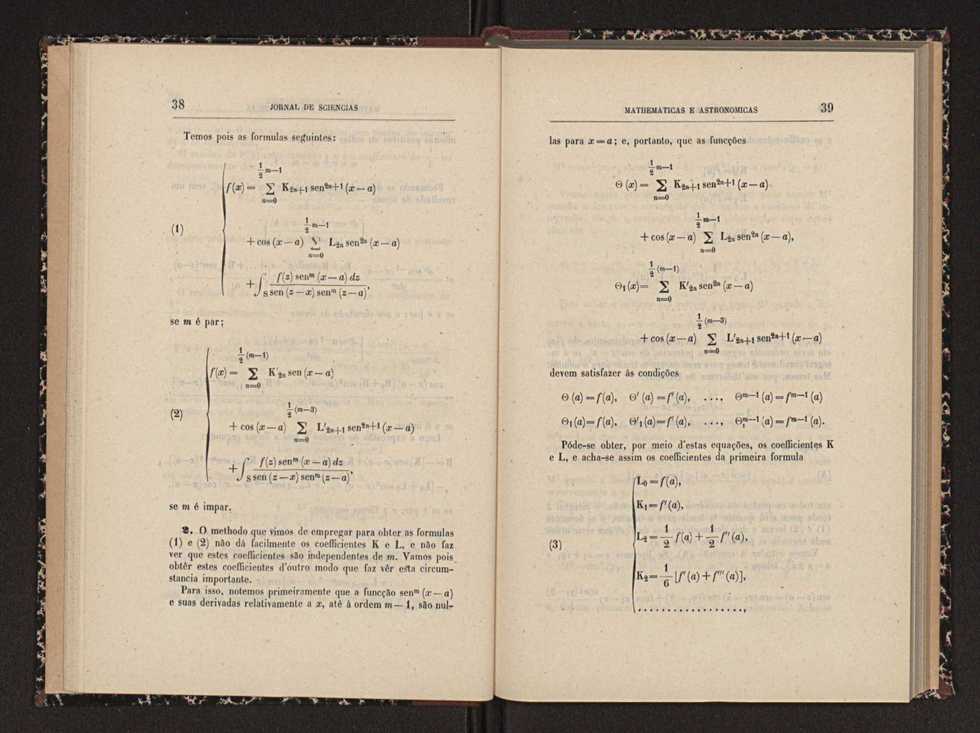 38
JORNAL DE SCIENCIAS
Temos pois as formulas seguintes:
(1)
f(x) = ∑_{n=0}^{½m—1} K_{2n+1} sen^{2n+1} (x — a)
+ cos (x — a) ∑_{n=0}^{½m—1} L_{2n} sen^{2n} (x — a)
+ ∫_S f(z) sen^m (x — a) dz / sen (z — x) sen^m (z — a),
se m é par;
(2)
f(x) = ∑_{n=0}^{½(m—1)} K'_{2n} sen (x — a)
+ cos (x — a) ∑_{n=0}^{½(m—3)} L'_{2n+1} sen^{2n+1} (x — a)
+ ∫_S f(z) sen^m (x — a) dz / sen (z — x) sen^m (z — a),
se m é impar.
2. O methodo que vimos de empregar para obter as formulas
(1) e (2) não dá facilmente os coefficientes K e L, e não faz
ver que estes coefficientes são independentes de m. Vamos pois
obtêr estes coefficientes d'outro modo que faz vêr esta circum-
stancia importante.
Para isso, notemos primeiramente que a funcção sen^m (x — a)
e suas derivadas relativamente a x, até á ordem m — 1, são nul-
MATHEMATICAS E ASTRONOMICAS
39
las para x = a; e, portanto, que as funcções
Θ (x) = ∑_{n=0}^{½m—1} K_{2n+1} sen^{2n+1} (x — a)
+ cos (x — a) ∑_{n=0}^{½m—1} L_{2n} sen^{2n} (x — a),
Θ_1 (x) = ∑_{n=0}^{½(m—1)} K'_{2n} sen^{2n} (x — a)
+ cos (x — a) ∑_{n=0}^{½(m—3)} L'_{2n+1} sen^{2n+1} (x — a)
devem satisfazer ás condições
Θ (a) = f(a), Θ' (a) = f' (a), ..., Θ^{m—1} (a) = f^{m—1} (a)
Θ_1 (a) = f(a), Θ'_1 (a) = f' (a), ..., Θ_1^{m—1} (a) = f^{m—1} (a).
Póde-se obter, por meio d'estas equações, os coefficientes K
e L, e acha-se assim os coefficientes da primeira formula
(3)
L_0 = f(a),
K_1 = f' (a),
L_2 = 1/2 f(a) + 1/2 f'' (a),
K_2 = 1/6 [f' (a) + f''' (a)],
. . . . . . . . . . . . . . . . . . ,